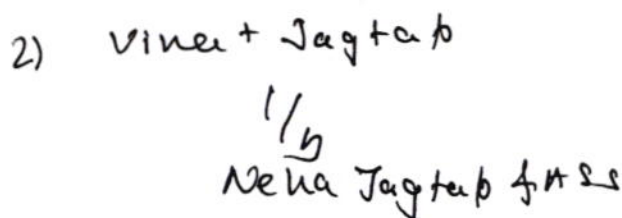 2) Vinet Jagtap
1/b
Neha Jagtap & ASS